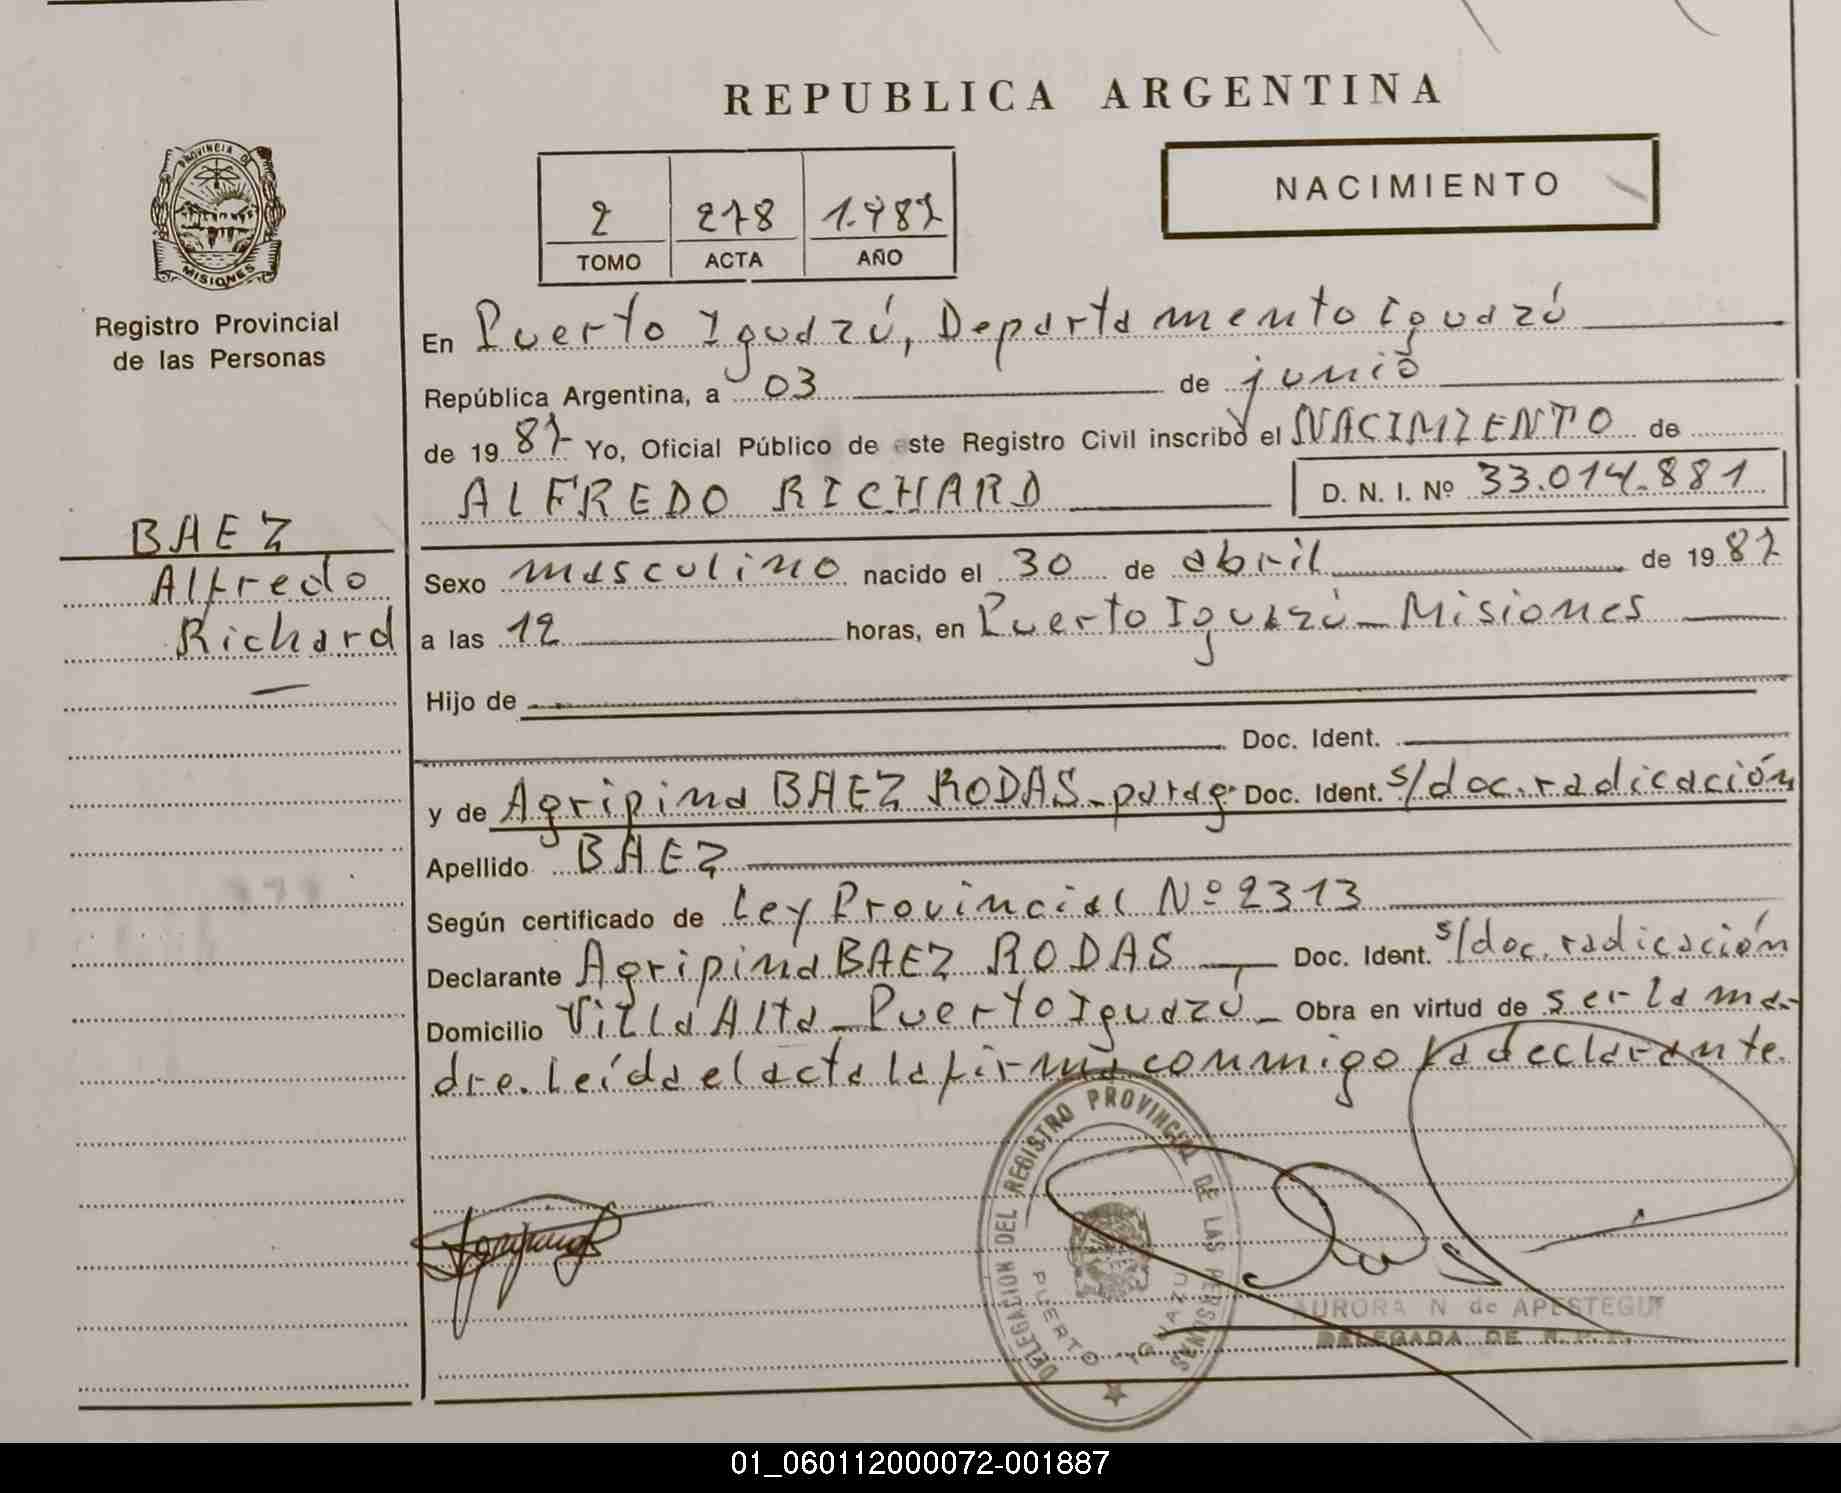 REPUBLICA ARGENTINA
NACIMIENTO
2 278 1.987
TOMO ACTA AÑO
PROVINCIA DE
MISIONES
Registro Provincial
de las Personas
BAEZ
Alfredo
Richard
En Puerto Iguazú, Departamento Iguazú
República Argentina, a 03 de junio
de 1987 Yo, Oficial Público de este Registro Civil inscribo el NACIMIENTO de
ALFREDO RICHARD D. N. I. Nº 33.014.881
Sexo masculino nacido el 30 de abril de 1987
a las 12 horas, en Puerto Iguazú - Misiones
Hijo de
Doc. Ident.
y de Agripina BAEZ RODAS - parag. Doc. Ident. s/doc. radicación
Apellido BAEZ
Según certificado de Ley Provincial Nº 2313
Declarante Agripina BAEZ RODAS Doc. Ident. s/doc. radicación
Domicilio Villa Alta - Puerto Iguazú - Obra en virtud de ser la ma-
dre. Leída el acta la firma conmigo la declarante.
DELEGACION DEL REGISTRO PROVINCIAL DE LAS PERSONAS
PUERTO IGUAZU
AURORA N de APESTEGUI
DELEGADA DE R. P. P.
01_060112000072-001887